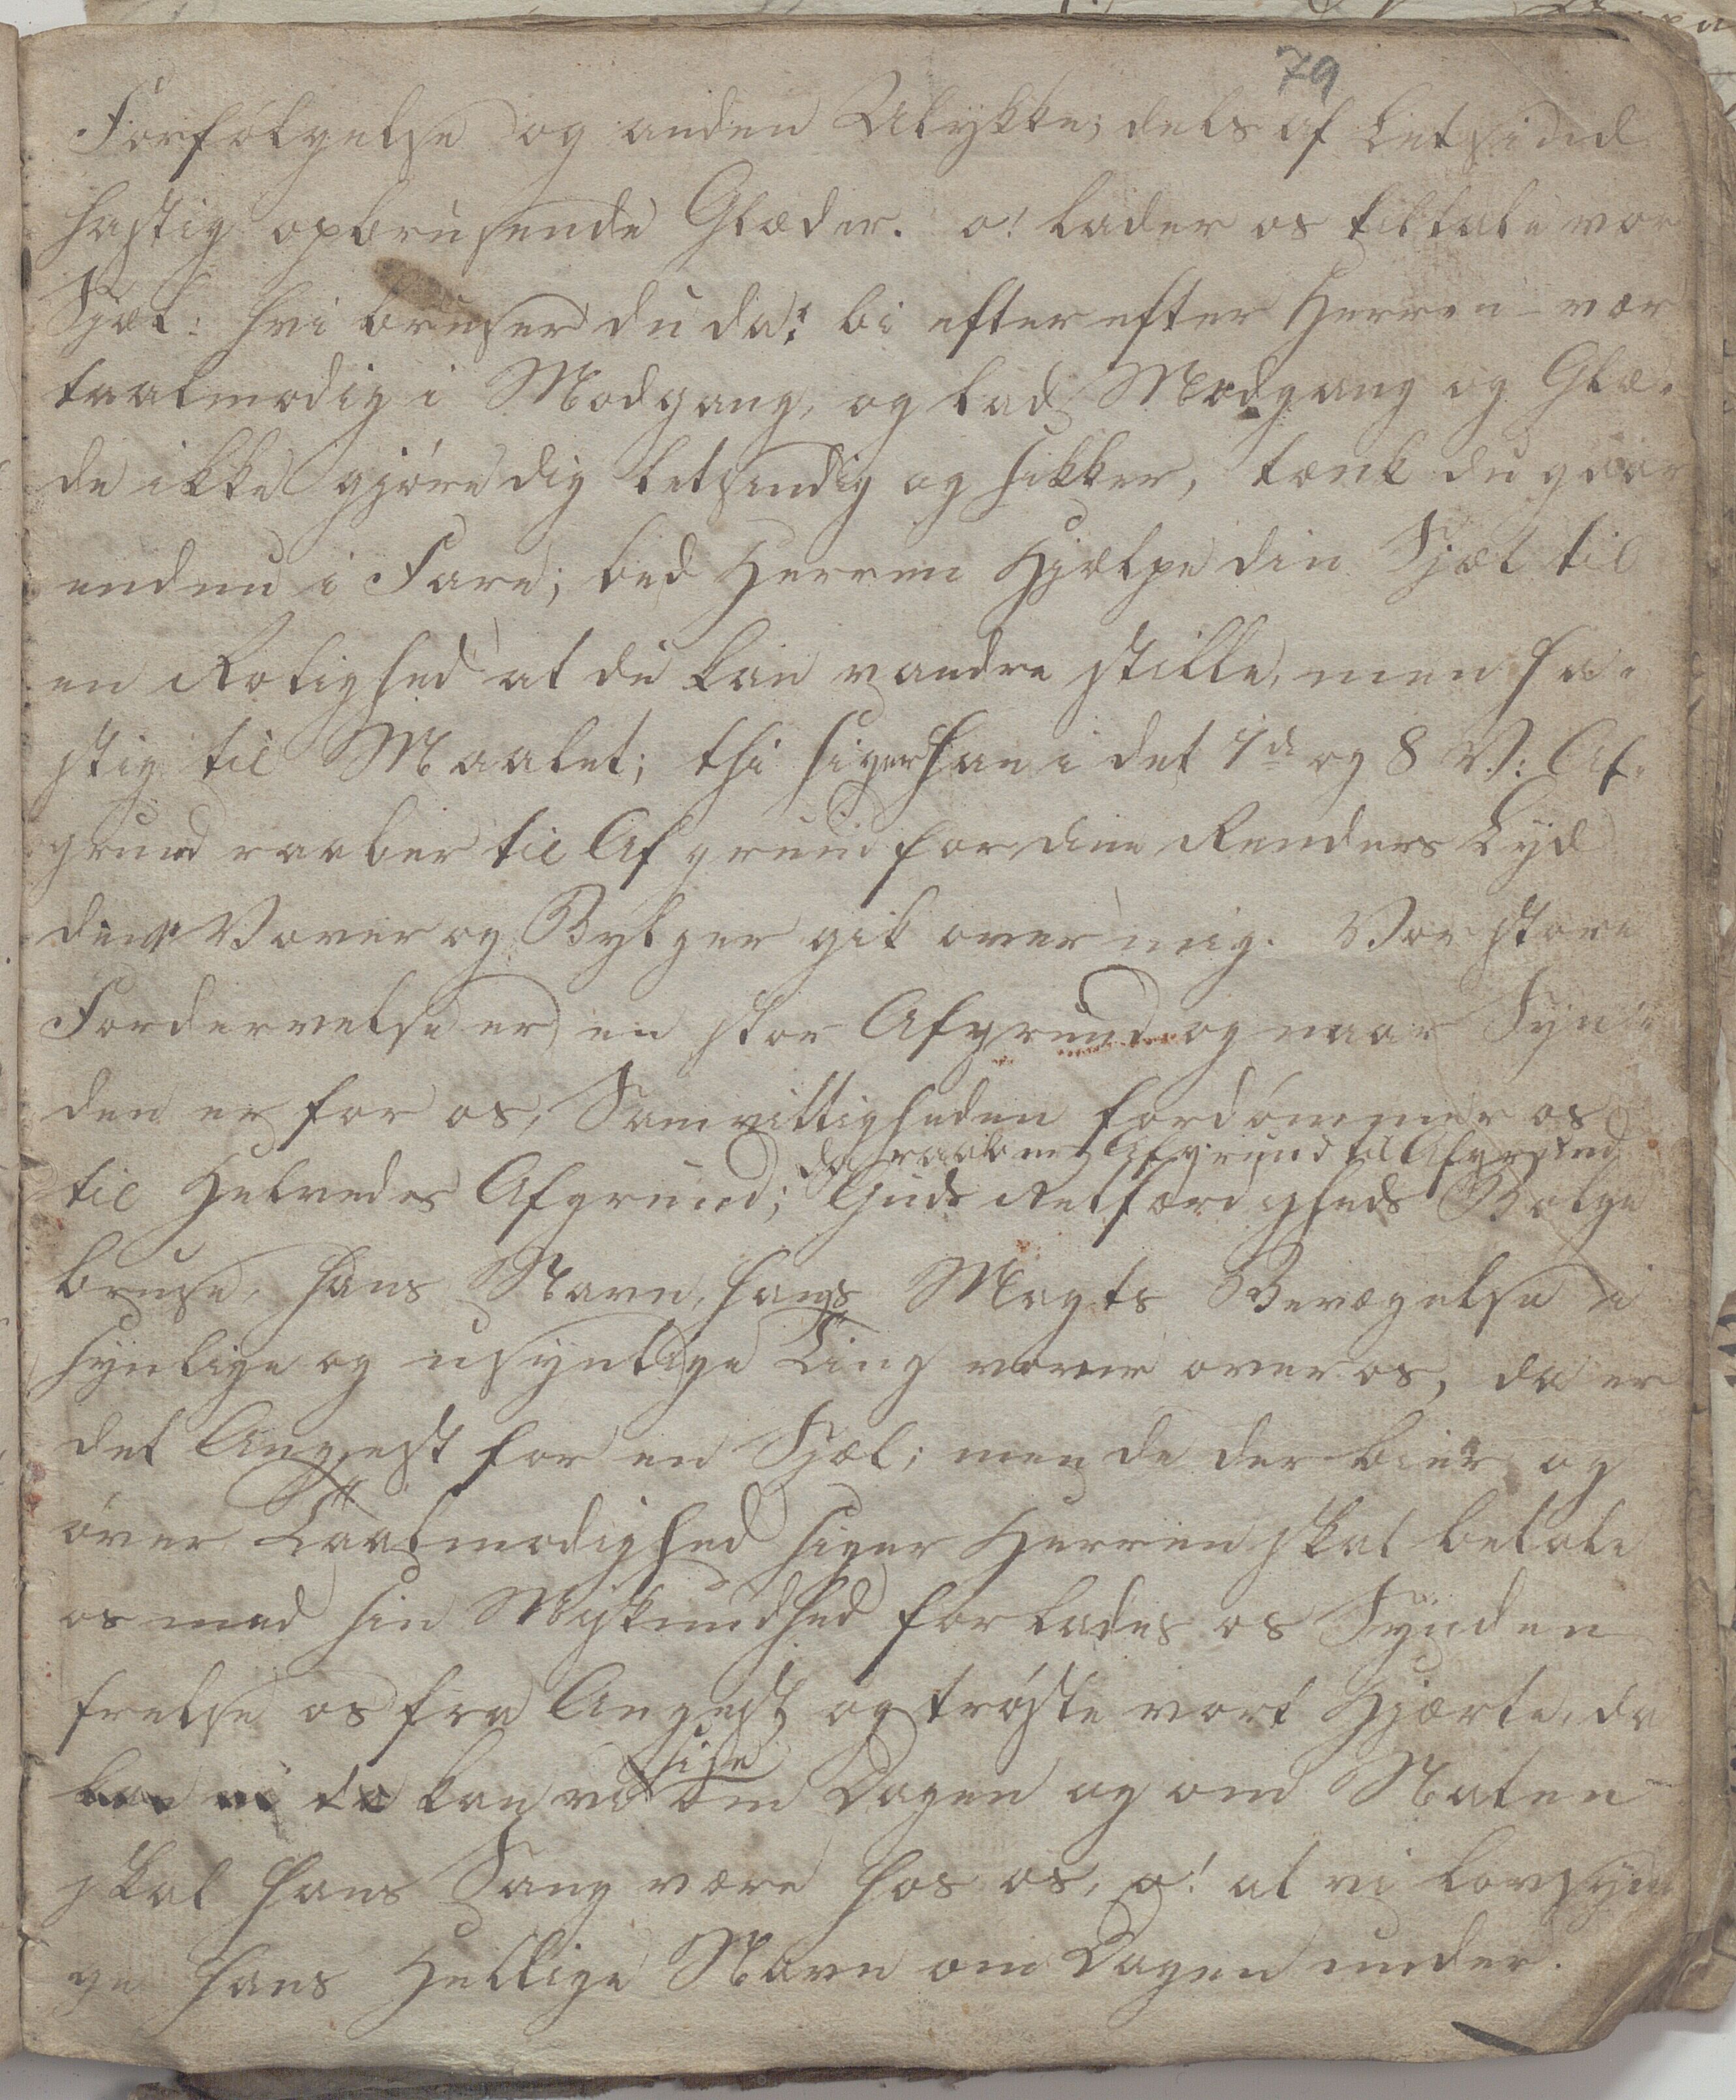 79
Forfølgelse og anden Ulykke; dels af Letsind
hastig opbrusende Glæder. o! lader os tiltale vor
Sjæl: hvi bruser du da? bi efter efter Herren vær
taalmodig i Modgang, og lad Medgang og Glæ-
de ikke gjøre dig letsindig og sikker, tænk du gaar
endnu i Fare; bed Herren Hjælpe din Sjæl til
en Rolighed at du kan vandre stille, men ha-
stig til Maalet; thi siger han i det 7de og 8 V: Af-
grund raaber til Afgrund for dine Renders Lyd
dine Vover og Bylger gik over mig. Vor store
Fordervelse er en stor Afgrund og naar Syn-
den er for os, Samvittigheden fordømmer os
da raaber Afgrund til Afgrund
til Helvedes Afgrund; Guds Retfærdigheds Bølge
bruse, hans Navn, hans Magts Bevægelse i
synlige og usynlige Ting vover over os, da er
det Angest for en Sjæl; men de der bier og
øver Taalmodighed siger Herren skal betale
os med sin Myskundhed forlades os Synden
frelse os fra Angest og trøste vort Hjærte, da
sige
kan vi da kan vi om Dagen og om Naten
skal hans Sang være hos os, o! at vi lovsyn
ge hans Hellige Navn om Dagen under.